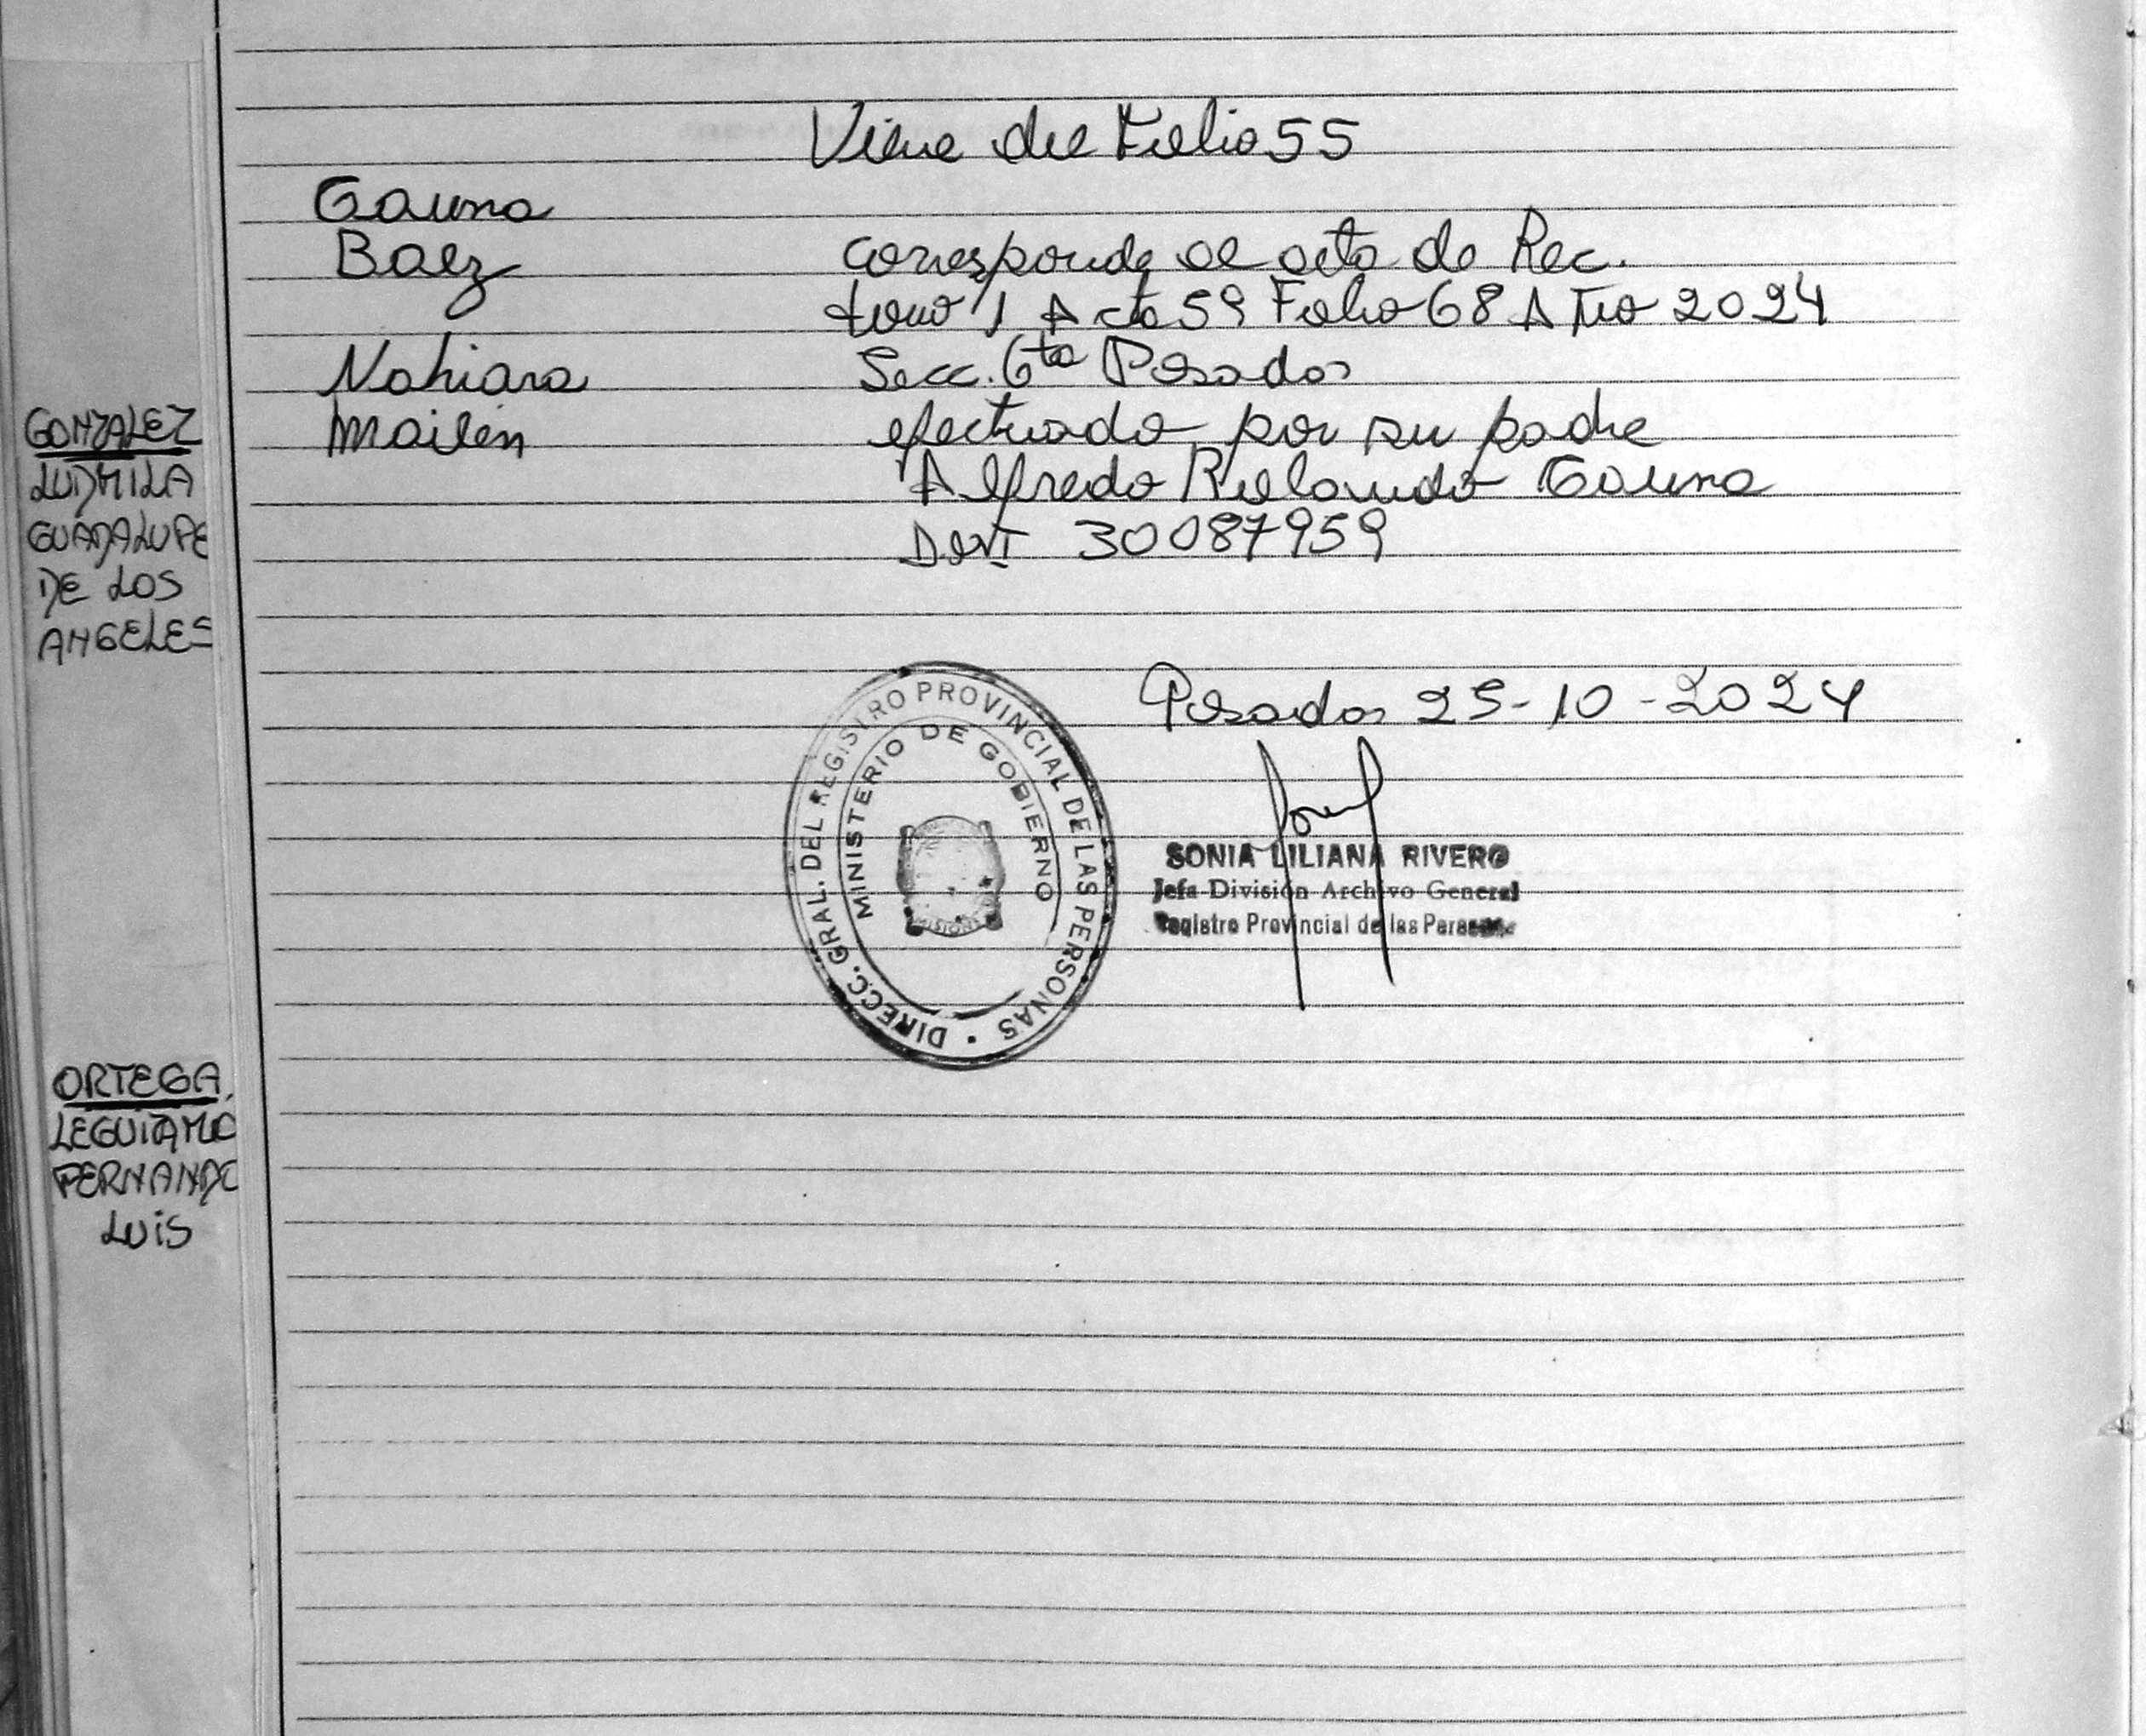 Viene del Folio 55
Gauna
Baez
corresponde al acta de Rec.
tomo 1 Acta 59 Folio 68 Año 2024
Nahiara
Secc. 6ta Posadas
Mailén
efectuado por su padre
Alfredo Rolando Gauna
DNI 30087959
GONZALEZ
LUDMILA
GUADALUPE
DE LOS
ANGELES
Posadas 25-10-2024
DIRECC. GRAL. DEL REGISTRO PROVINCIAL DE LAS PERSONAS
MINISTERIO DE GOBIERNO
MISIONES
SONIA LILIANA RIVERO
Jefa División Archivo General
Registro Provincial de las Personas
ORTEGA,
LEGUIZAMO
FERNANDO
LUiS